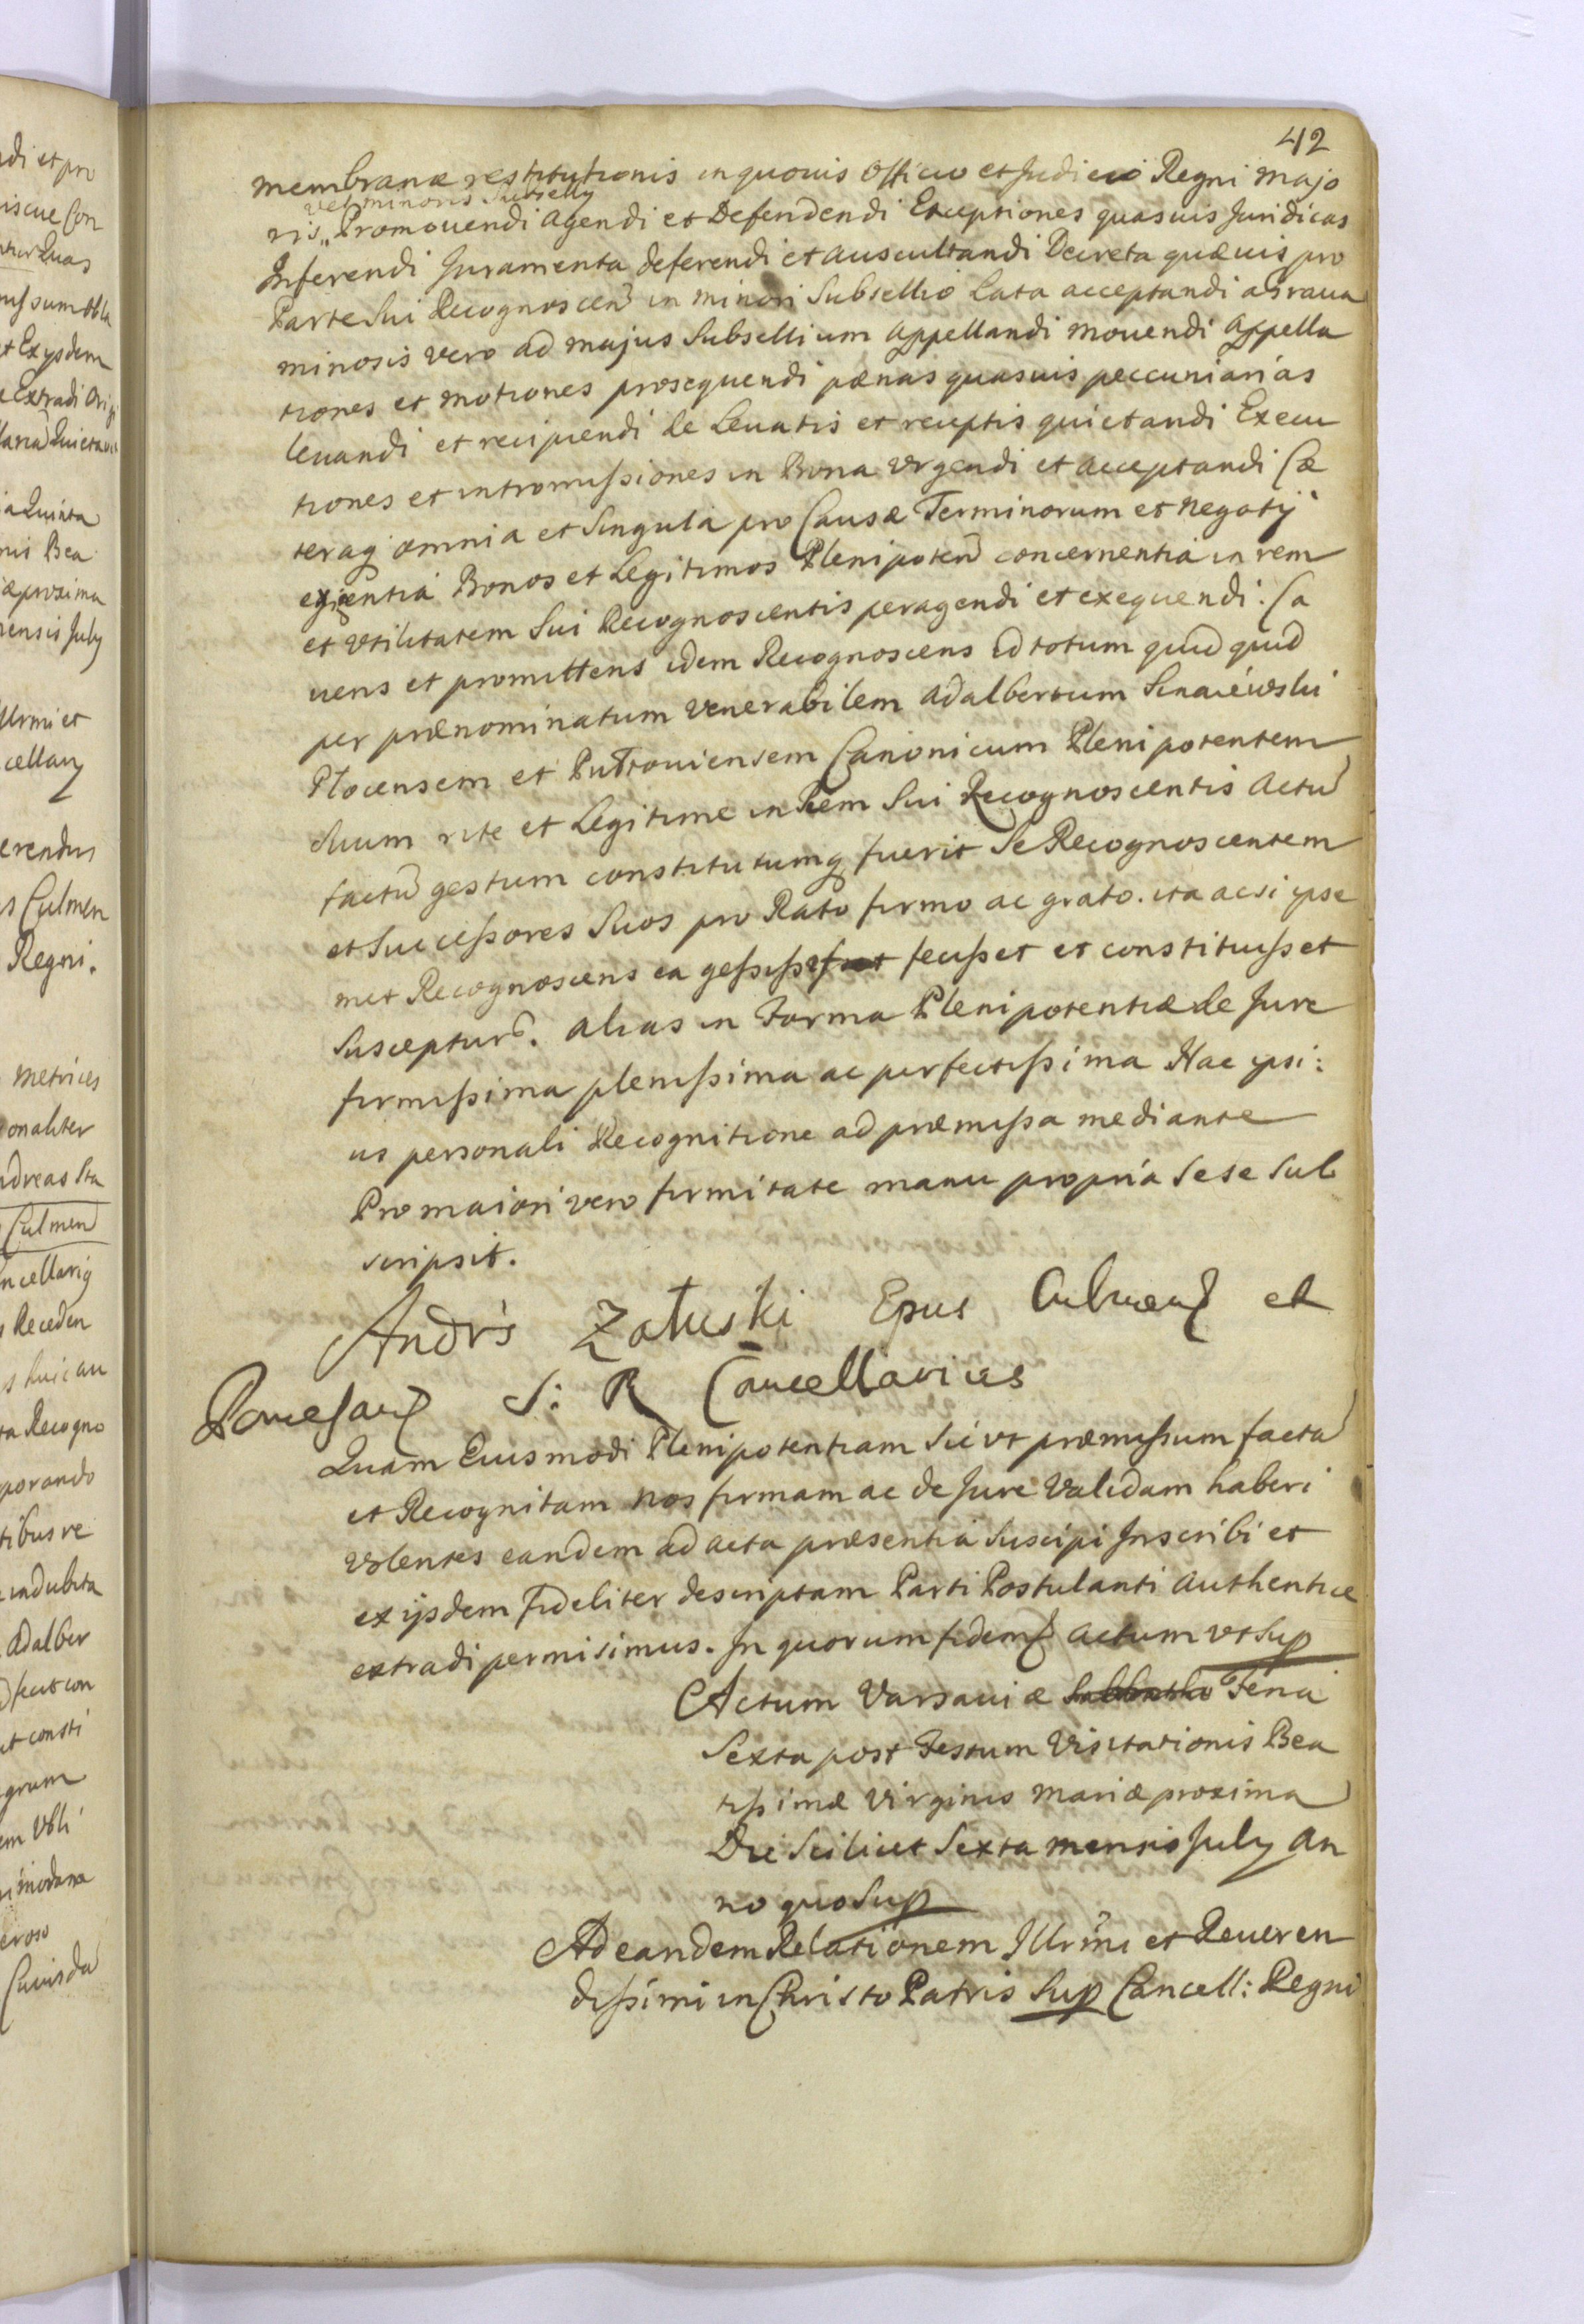 42
membranæ restitutionis in quouis Officio et Judicio Regni Majo
vel minoris Subselly
ris,, Promouendi Agendi et Defendendi Exceptiones quasuis Juridicas
Inferendi Juramenta deferendi et auscultandi Decreta quæuis pro
Parte Sui Recognoscen in minori Subsellio Lata acceptandi aggraua
minosis vero ad majus Subsellium Appellandi mouendi Appella
tiones et motiones prosequendi pænas quasuis peccuniarias
leuandi et recipiendi de Leuatis et receptis quietandi Execu
tiones et intromissiones in Bona vrgendi et acceptandi Cæ
teraq omnia et Singula pro Causæ Terminorum et negotij
exigentia Bonos et Legitimos Plenipoten concernentia in rem
et vtilitatem Sui Recognoscentis peragendi et exequendi. Ca
uens et promittens idem Recognoscens id totum quid quid
per prænominatum Venerabilem Adalbertum
Plocensem et Canonicum Plenipotentem
Suum rite et Legitime in Rem Sui Recognoscentis Actu
factu gestum constitutumq fuerit Se Recognoscentem
et Successores Suos pro Rato firmo ac grato. ita acsi ipse
met Recognoscens ea gessisset fecisset et constituisset
Suscepturu. alias in Forma Plenipotentiæ de Jure
firmissima plenissima ac perfectissima Hac ipsi:
us personali Recognitione ad præmissa mediante
Pro maiori vero firmitate manu propria Sese Sub
scripsit.
Andrs Załuski Epus Culmens et
Pomesans S: R Cancellarius
Quam Eiusmodi Plenipotentiam Sic vt præmissum facta
et Recognitam nos firmam ac de Jure Validam haberi
volentes eandem ad acta præsentia Suscipi Inscribi et
ex ijsdem fideliter descriptam Parti Postulanti Authentice
extradi permisimus. In quorum fidem Actum vt Sup
Actum Varsauiæ Sabbatho Feria
Sexta post Festum Visitationis Bea
tissimæ Virginis Mariæ proxima
Die Scilicet Sexta mensis July An
no quo Sup
Ad eandem Relationem Illrmi et Reueren
dissimi in Christo Patris Sup Cancell: Regni